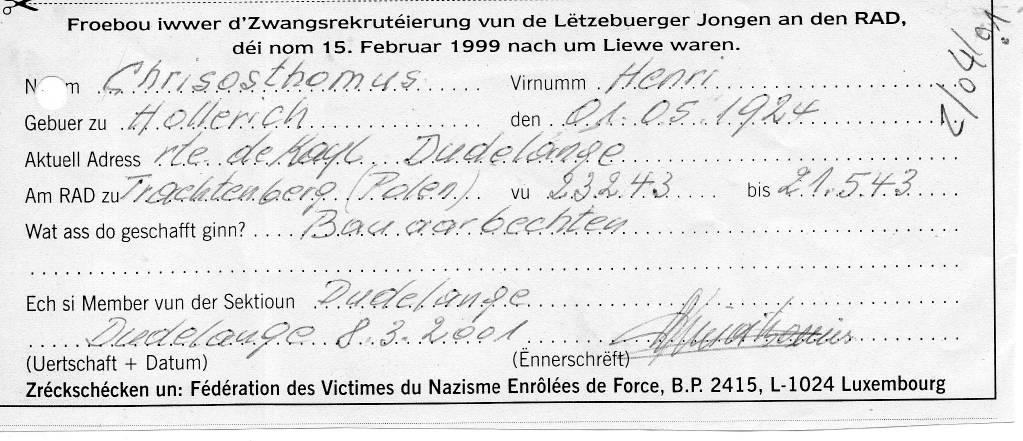 Froebou iwwer d'Zwangsrekrutéierung vun de Lëtzebuerger Jongen an den RAD,
déi nom 15. Februar 1999 nach um Liewe waren.
N m Chrisosthomus Virnumm Henri
Gebuer zu Hollerich den 01.05.1924
Aktuell Adress rte. de Kayl Dudelange
Am RAD zu Trachtenberg (Polen) vu 23243 bis 21.543
Wat ass do geschafft ginn? Bauaarbechten
Ech si Member vun der Sektioun Dudelange
Dudelange 8.3.2001
(Uertschaft + Datum) (Ënnerschrëft)
Zréckschécken un: Fédération des Victimes du Nazisme Enrôlées de Force, B.P. 2415, L-1024 Luxembourg